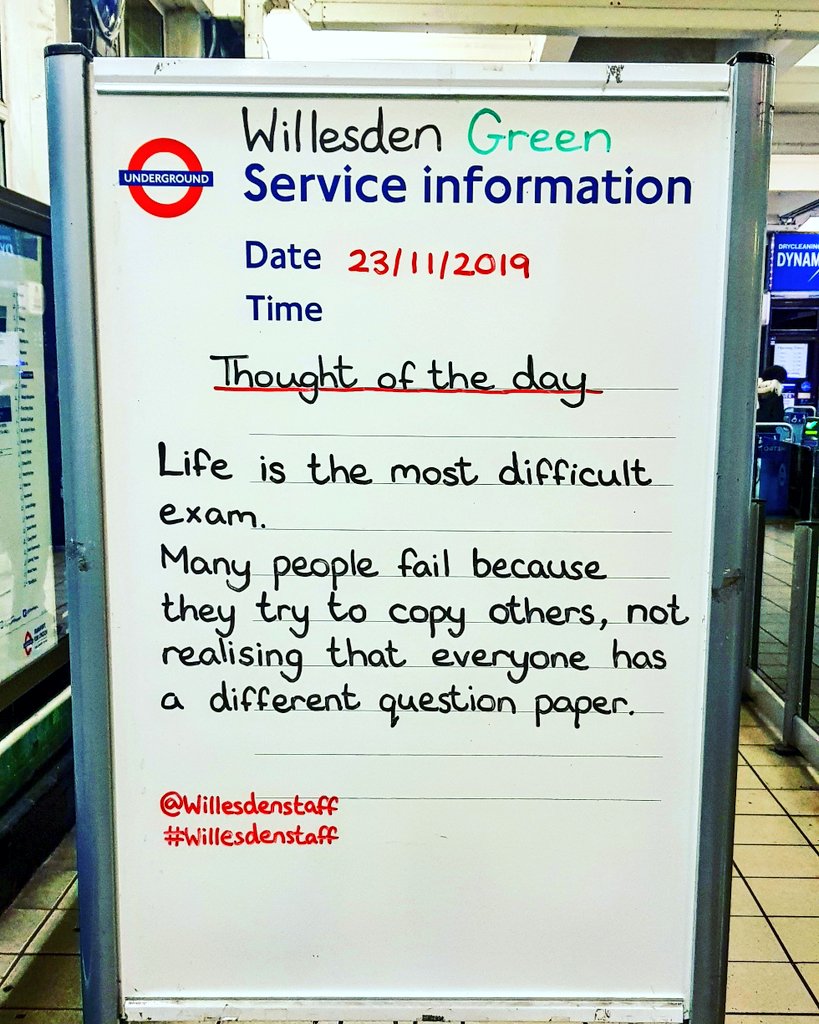 Willesden Green
UNDERGROUND
Service information
Date 23/11/2019
Time
Thought of the day
Life is the most difficult
exam.
Many people fail because
they try to copy others, not
realising that everyone has
a different question paper.
@Willesdenstaff
#Willesdenstaff
DRYCLEANING